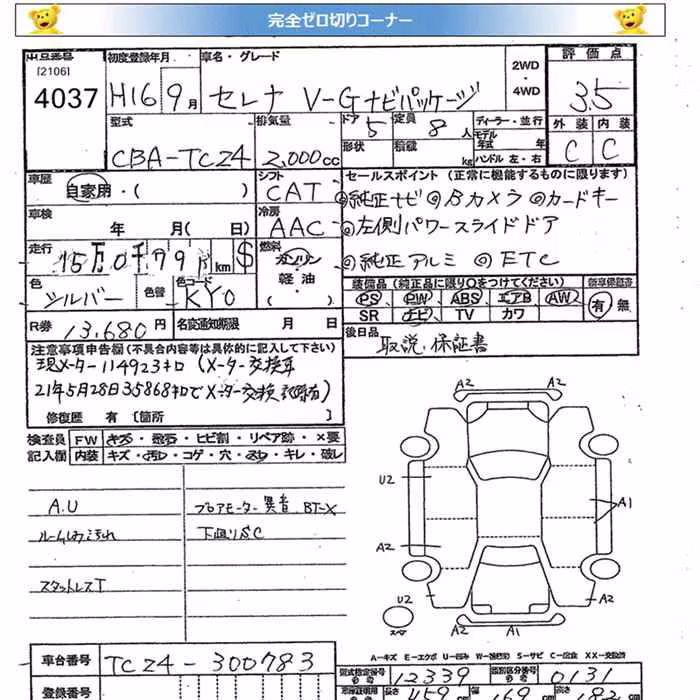 完全ゼロ切りコーナー
出品番号 初度登録年月 車名・グレード 2WD・4WD 評価点
[2106]
4037 H16 9月 セレナ V-Gナビパッケージ 3.5
型式 排気量 ドア 5 定員 8人 ディーラー・並行 外装 内装
CBA-TC24 2,000cc 形状 積載 kg モデル年式 年 ハンドル 左・右 C C
車歴 自家用・( ) シフト CAT セールスポイント(正常に機能するものに限ります)
◎純正ナビ ◎Bカメラ ◎カードキー
車検 年 月( 日) 冷房 AAC ◎左側パワースライドドア
走行 15万0千779 km $ 燃料 ガソリン・軽油・( ) ◎純正アルミ ◎ETC
色 シルバー 色替 色コード KY0 装備品(純正品に限り○をつけてください) 新車保証書
PS PW ABS エアB AW 有・無
SR ナビ TV カワ
R券 13,680円 名変通知期限 月 日 後日品
取説、保証書
注意事項申告欄(不具合内容等は具体的に記入して下さい)
現メーター114923キロ(メーター交換車
21年5月28日35868キロでメーター交換記録有)
修復歴 有 [箇所 ]
検査員 FW キズ・飛石・ヒビ割・リペア跡・×要
記入欄 内装 キズ・汚レ・コゲ・穴・スレ・キレ・破レ
A.U プロアモーター異音 BT-X
ルーム内汚れ 下廻りSC
スタットレスT
A2 A2
U2
A1
A2
U2 A2
スペア A2 A1
A-キズ E-エクボ U-凹み W-補修跡 S-サビ C-腐食 XX-交換済
車台番号 TC24-300783
型式指定番号 12339 類別区分番号 0131
登録番号 長さ 459 cm 幅 169 cm 高さ 182 cm